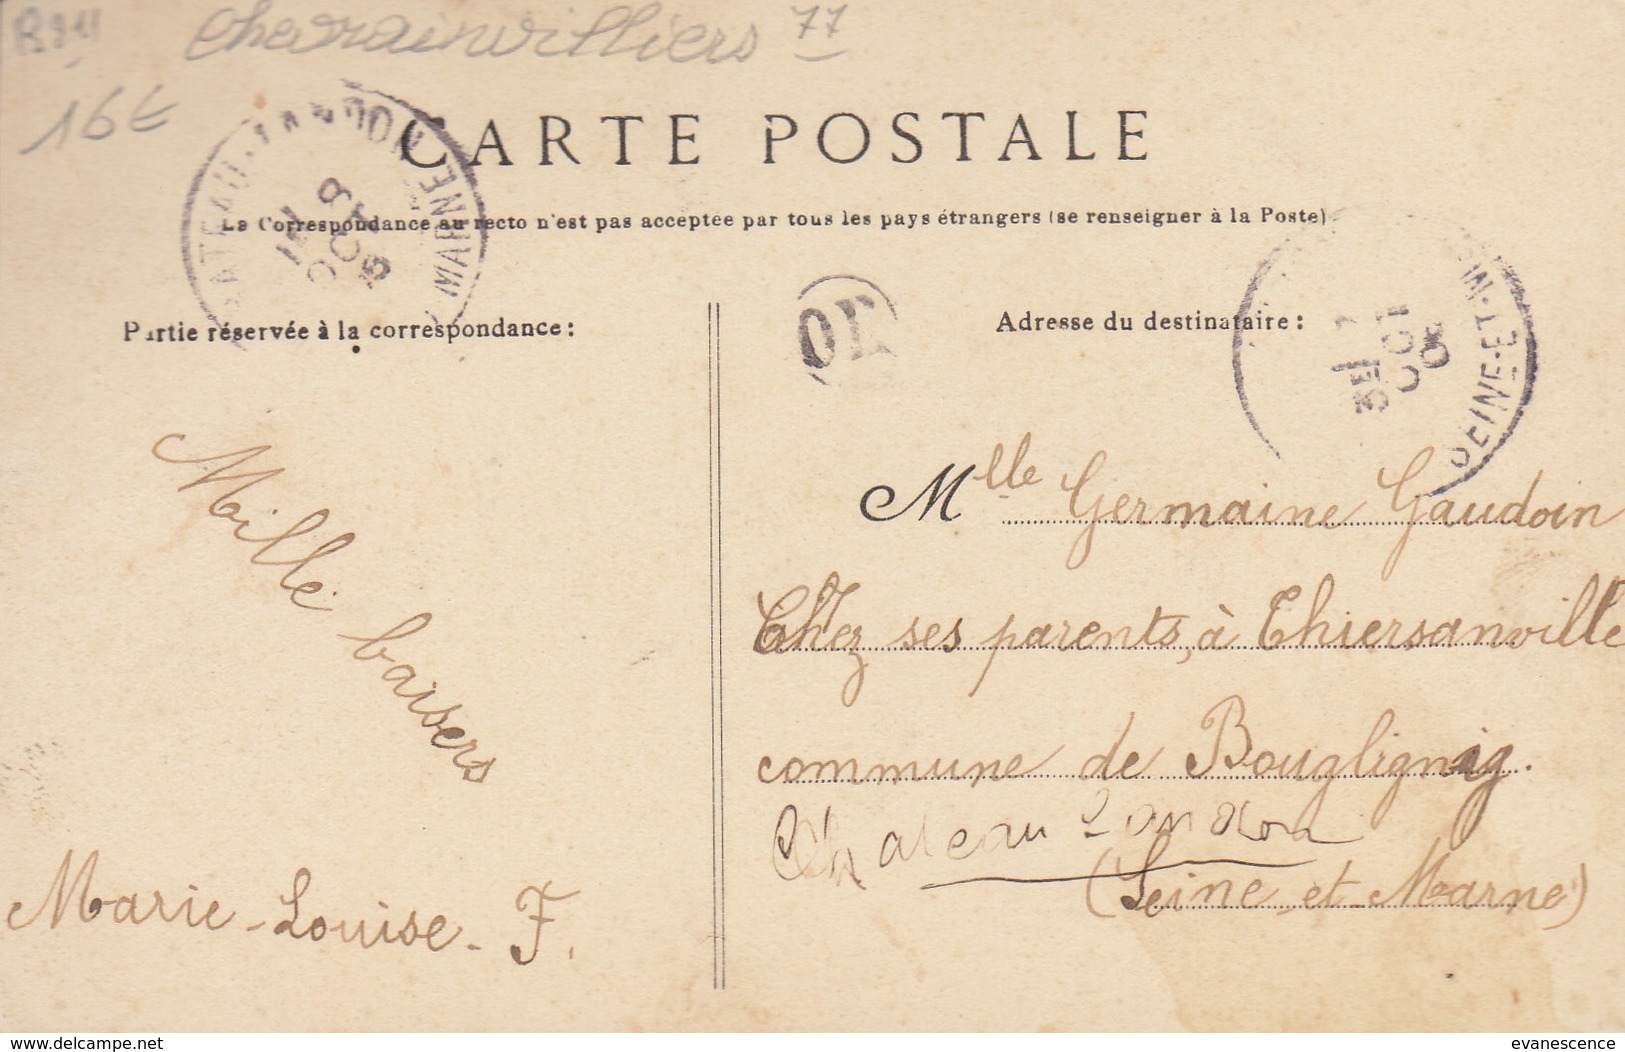 Chevrainvilliers 77
16€
CARTE POSTALE
La Correspondance au recto n'est pas acceptée par tous les pays étrangers (se renseigner à la Poste)
Partie réservée à la correspondance :
Adresse du destinataire :
OR
OCT
08
SEINE-ET-M
MARNE
Mille baisers
Marie-Louise-F.
Mlle Germaine Gaudoin
Chez ses parents, à Thiersanville
commune de Bougligny.
Chateau Landon
(Seine-et-Marne)
delcampe.net
evanescence